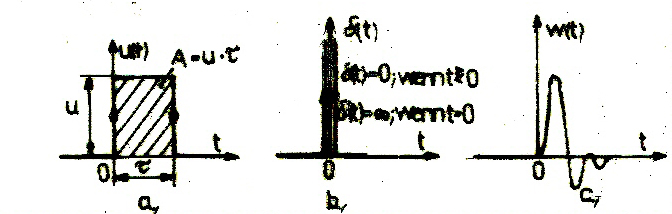 u(t)
A=u·τ
u
0
τ
t
a,
δ(t)
δ(t)=0; wenn t≠0
δ(t)=∞; wenn t=0
0
t
b,
w(t)
0
t
c,